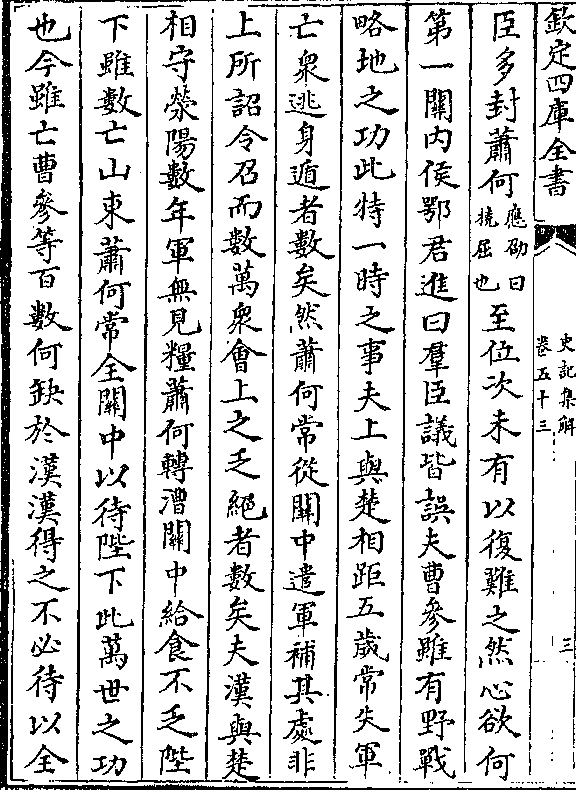 欽定四庫全書
史記集解
卷五十三
三
臣多封蕭何應劭曰橈屈也至位次未有以復難之然心欲何
第一關內侯鄂君進曰羣臣議皆誤夫曹參雖有野戰
略地之功此特一時之事夫上與楚相距五歲常失軍
亡衆逃身遁者數矣然蕭何常從關中遣軍補其處非
上所詔令召而數萬衆會上之乏絕者數矣夫漢與楚
相守滎陽數年軍無見糧蕭何轉漕關中給食不乏陛
下雖數亡山東蕭何常全關中以待陛下此萬世之功
也今雖亡曹參等百數何缺於漢漢得之不必待以全